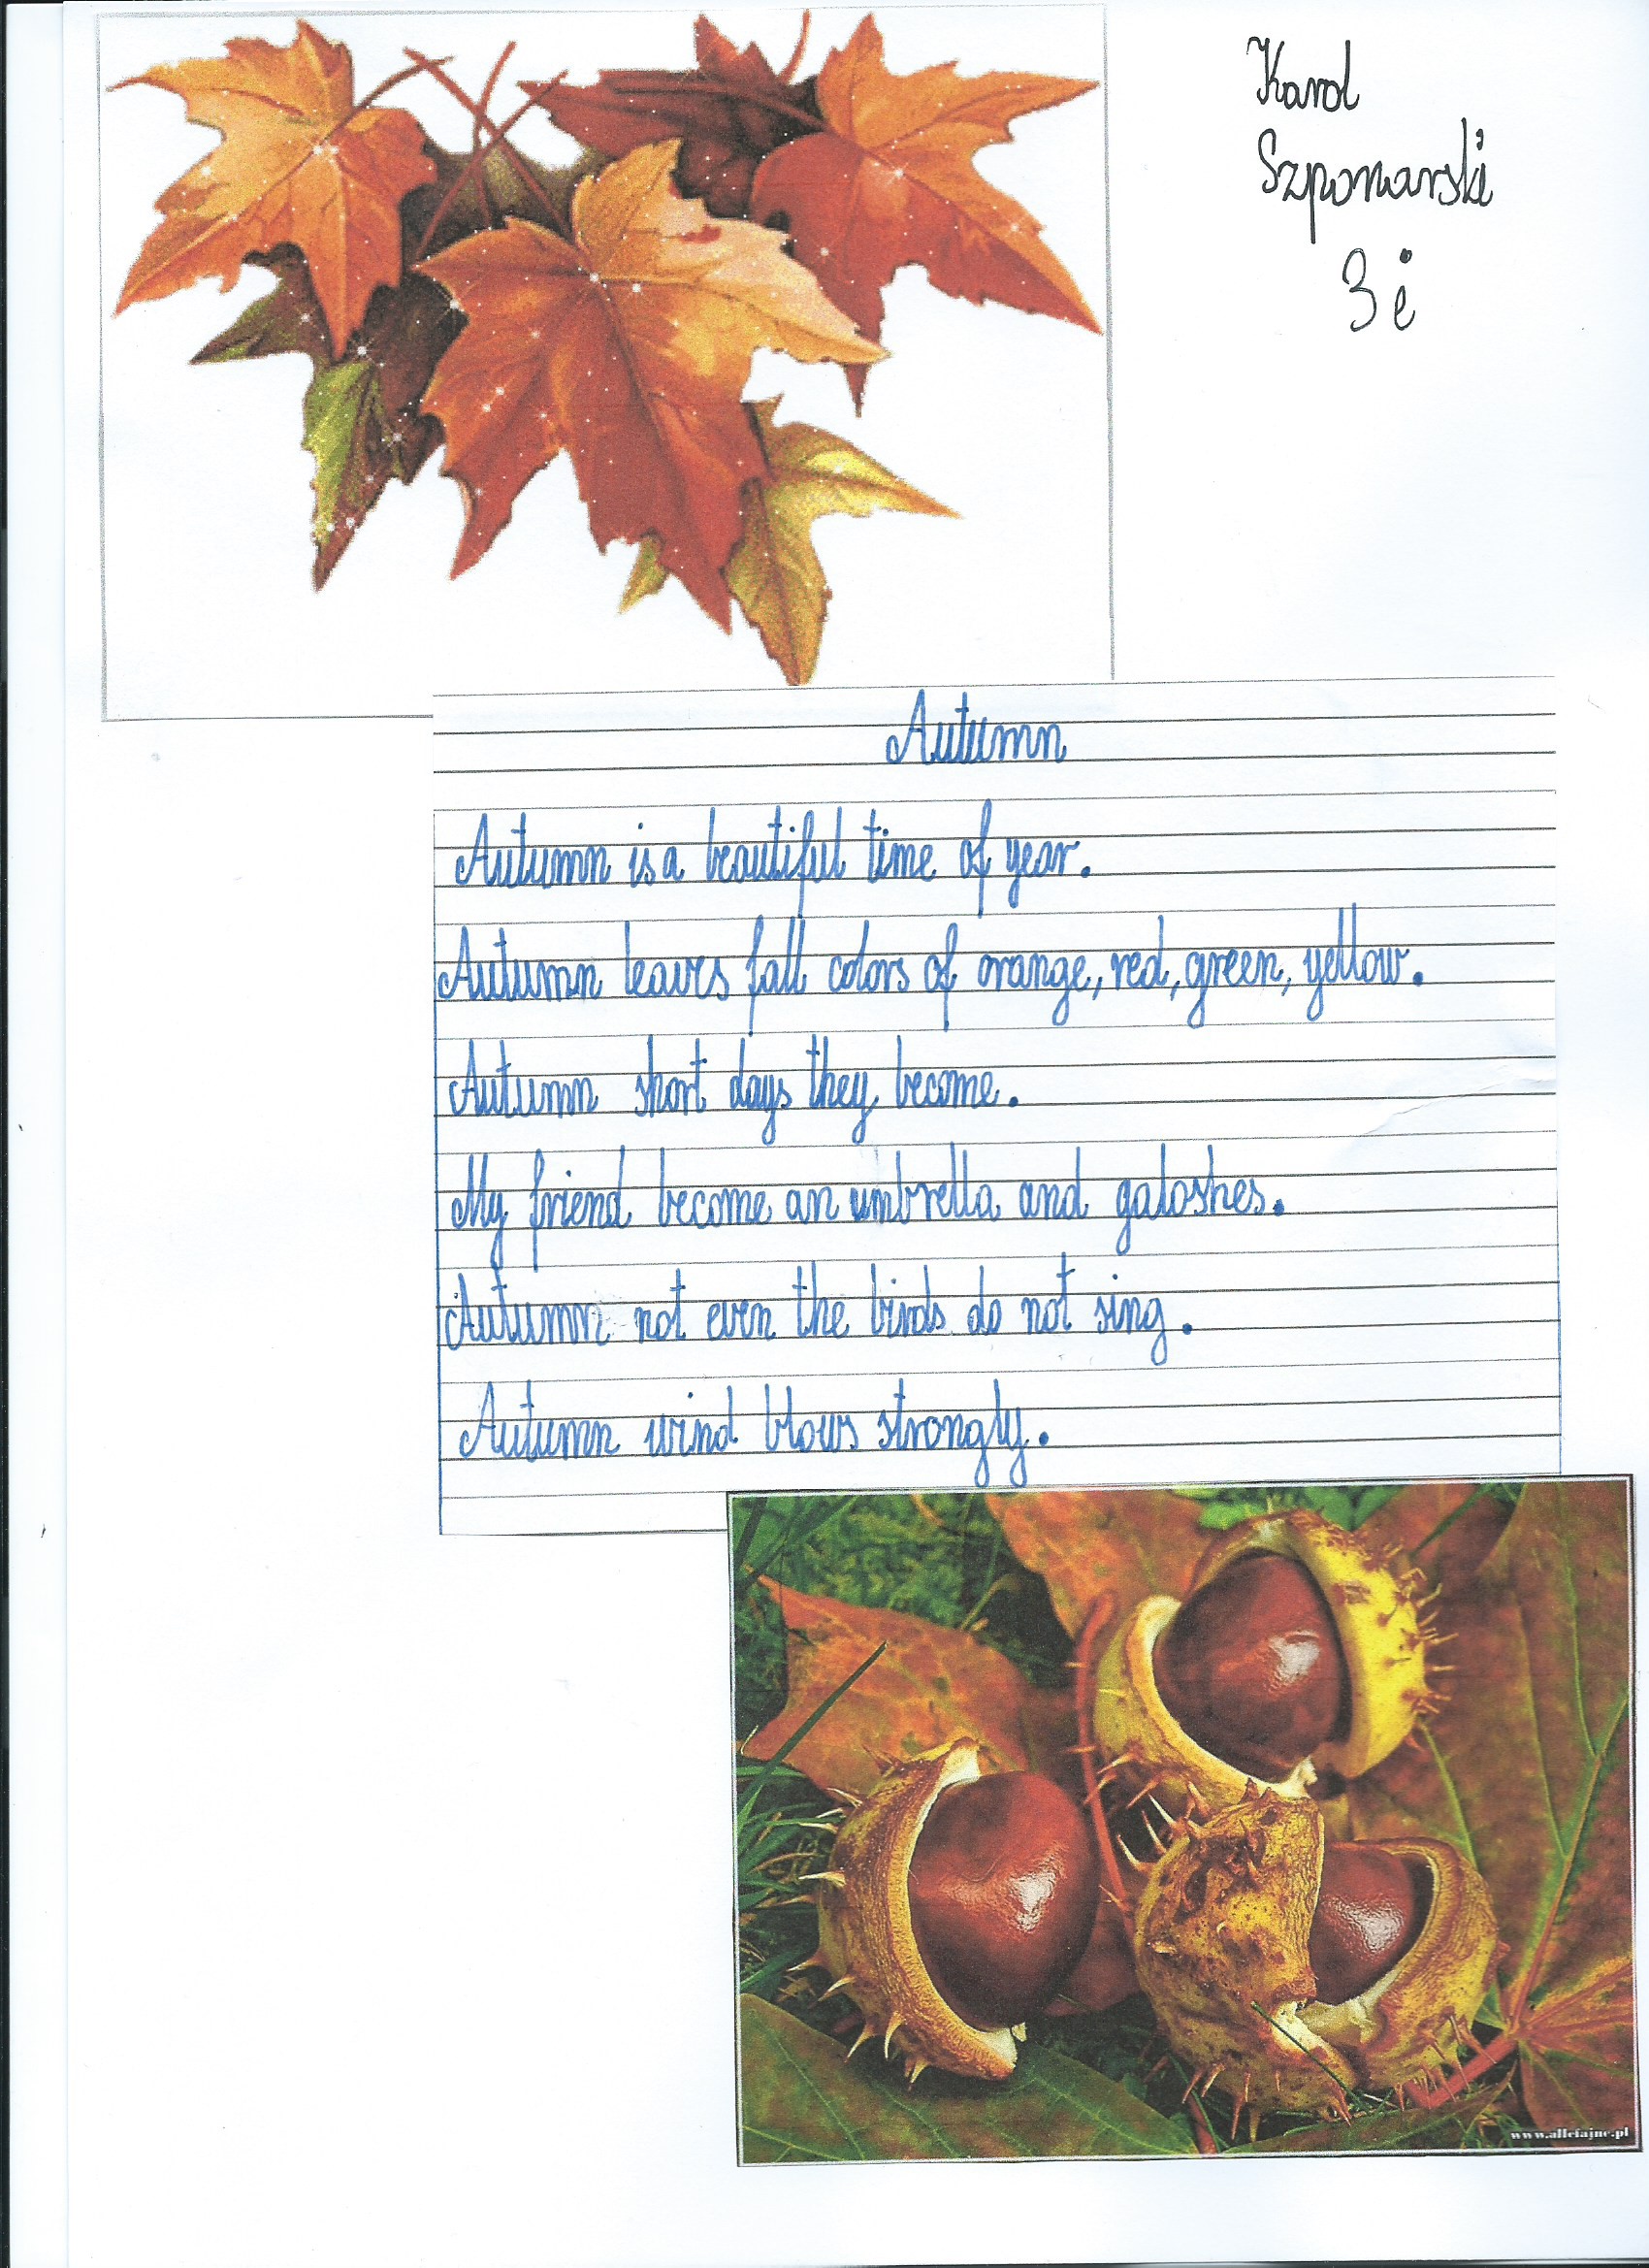 Karol
Szponarski
3 i
Autumn
Autumn is a beautiful time of year.
Autumn leaves fall colors of orange, red, green, yellow.
Autumn short days they become.
My friend become an umbrella and galoshes.
Autumn not even the birds do not sing.
Autumn wind blows strongly.
www.allefajne.pl